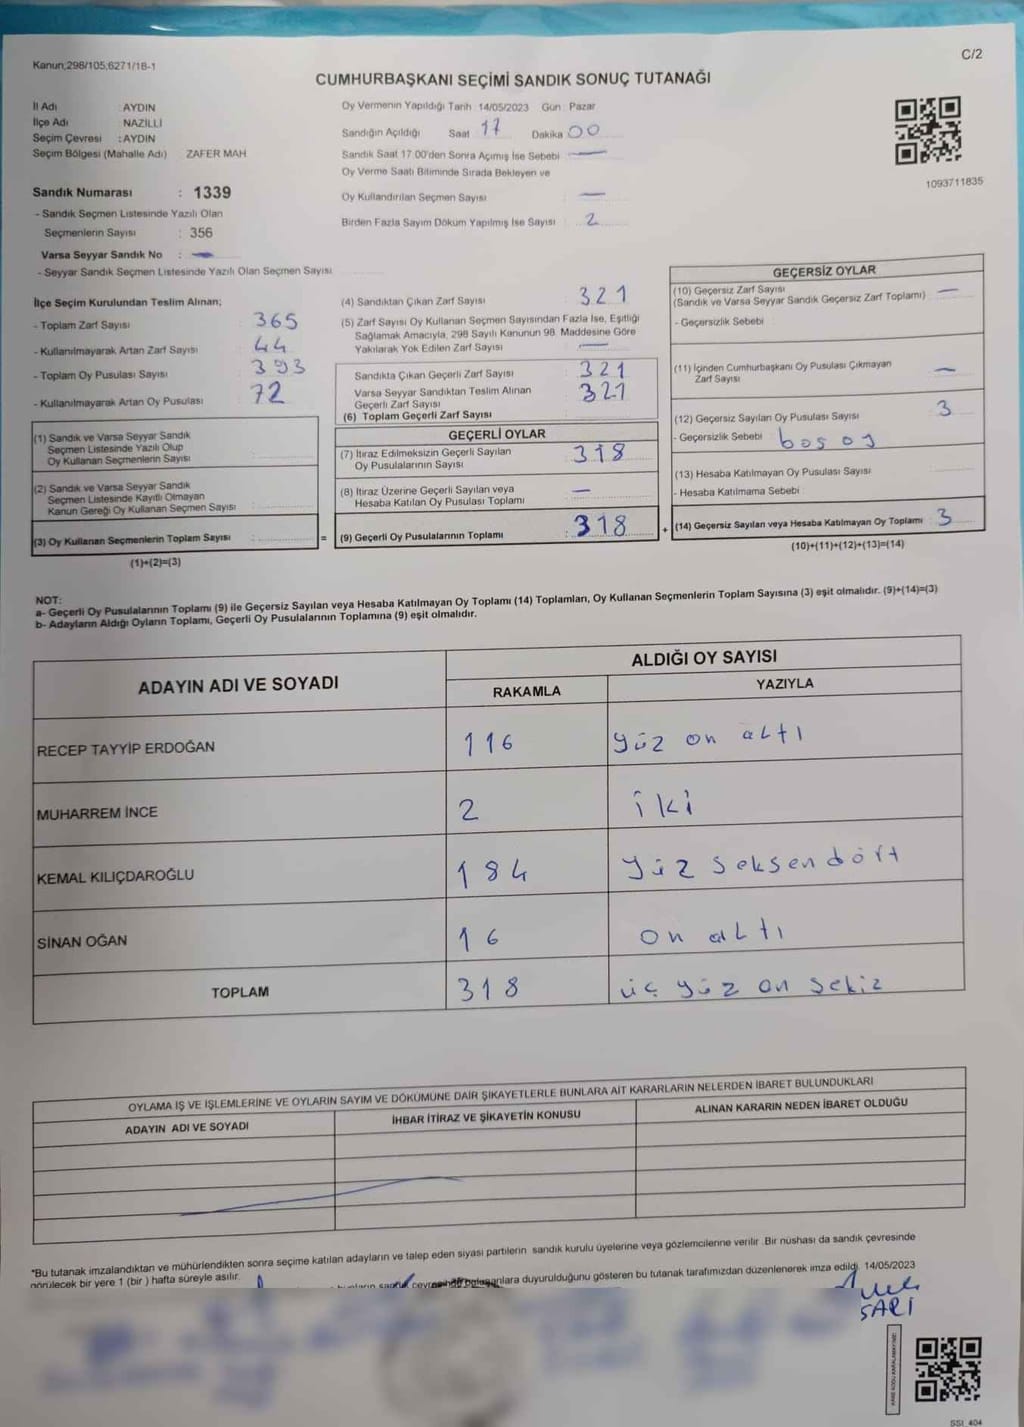 Kanun;298/105,6271/18-1
C/2
CUMHURBAŞKANI SEÇİMİ SANDIK SONUÇ TUTANAĞI
İl Adı AYDIN
İlçe Adı NAZİLLİ
Seçim Çevresi : AYDIN
Seçim Bölgesi (Mahalle Adı) ZAFER MAH
Sandık Numarası : 1339
- Sandık Seçmen Listesinde Yazılı Olan
Seçmenlerin Sayısı : 356
Varsa Seyyar Sandık No : —
- Seyyar Sandık Seçmen Listesinde Yazılı Olan Seçmen Sayısı
Oy Vermenin Yapıldığı Tarih 14/05/2023 Gün Pazar
Sandığın Açıldığı Saat 17 Dakika 00
Sandık Saat 17.00'den Sonra Açımış İse Sebebi —
Oy Verme Saati Bitiminde Sırada Bekleyen ve
Oy Kullandırılan Seçmen Sayısı —
Birden Fazla Sayım Döküm Yapılmış İse Sayısı 2
1093711835
İlçe Seçim Kurulundan Teslim Alınan;
- Toplam Zarf Sayısı 365
- Kullanılmayarak Artan Zarf Sayısı 44
- Toplam Oy Pusulası Sayısı 393
- Kullanılmayarak Artan Oy Pusulası 72
(1) Sandık ve Varsa Seyyar Sandık
Seçmen Listesinde Yazılı Olup
Oy Kullanan Seçmenlerin Sayısı
(2) Sandık ve Varsa Seyyar Sandık
Seçmen Listesinde Kayıtlı Olmayan
Kanun Gereği Oy Kullanan Seçmen Sayısı
(3) Oy Kullanan Seçmenlerin Toplam Sayısı :
(1)+(2)=(3)
=
(4) Sandıktan Çıkan Zarf Sayısı 321
(5) Zarf Sayısı Oy Kullanan Seçmen Sayısından Fazla İse, Eşitliği
Sağlamak Amacıyla, 298 Sayılı Kanunun 98. Maddesine Göre
Yakılarak Yok Edilen Zarf Sayısı —
Sandıkta Çıkan Geçerli Zarf Sayısı 321
Varsa Seyyar Sandıktan Teslim Alınan
Geçerli Zarf Sayısı 321
(6) Toplam Geçerli Zarf Sayısı
GEÇERLİ OYLAR
(7) İtiraz Edilmeksizin Geçerli Sayılan
Oy Pusulalarının Sayısı 318
(8) İtiraz Üzerine Geçerli Sayılan veya
Hesaba Katılan Oy Pusulası Toplamı —
(9) Geçerli Oy Pusulalarının Toplamı 318
+
GEÇERSİZ OYLAR
(10) Geçersiz Zarf Sayısı
(Sandık ve Varsa Seyyar Sandık Geçersiz Zarf Toplamı) —
- Geçersizlik Sebebi :
(11) İçinden Cumhurbaşkanı Oy Pusulası Çıkmayan
Zarf Sayısı —
(12) Geçersiz Sayılan Oy Pusulası Sayısı 3
- Geçersizlik Sebebi boş oy
(13) Hesaba Katılmayan Oy Pusulası Sayısı
- Hesaba Katılmama Sebebi :
(14) Geçersiz Sayılan veya Hesaba Katılmayan Oy Toplamı : 3
(10)+(11)+(12)+(13)=(14)
NOT:
a- Geçerli Oy Pusulalarının Toplamı (9) ile Geçersiz Sayılan veya Hesaba Katılmayan Oy Toplamı (14) Toplamları, Oy Kullanan Seçmenlerin Toplam Sayısına (3) eşit olmalıdır. (9)+(14)=(3)
b- Adayların Aldığı Oyların Toplamı, Geçerli Oy Pusulalarının Toplamına (9) eşit olmalıdır.
ADAYIN ADI VE SOYADI
ALDIĞI OY SAYISI
RAKAMLA YAZIYLA
RECEP TAYYİP ERDOĞAN 116 yüz on altı
MUHARREM İNCE 2 iki
KEMAL KILIÇDAROĞLU 184 yüz seksendört
SİNAN OĞAN 16 on altı
TOPLAM 318 üç yüz on sekiz
OYLAMA İŞ VE İŞLEMLERİNE VE OYLARIN SAYIM VE DÖKÜMÜNE DAİR ŞİKAYETLERLE BUNLARA AİT KARARLARIN NELERDEN İBARET BULUNDUKLARI
ADAYIN ADI VE SOYADI İHBAR İTİRAZ VE ŞİKAYETİN KONUSU ALINAN KARARIN NEDEN İBARET OLDUĞU
*Bu tutanak imzalandıktan ve mühürlendikten sonra seçime katılan adayların ve talep eden siyasi partilerin sandık kurulu üyelerine veya gözlemcilerine verilir .Bir nüshası da sandık çevresinde
görülecek bir yere 1 (bir ) hafta süreyle asılır.
duyurulduğunu gösteren bu tutanak tarafımızdan düzenlenerek imza edildi. 14/05/2023
SARI
SSI_404